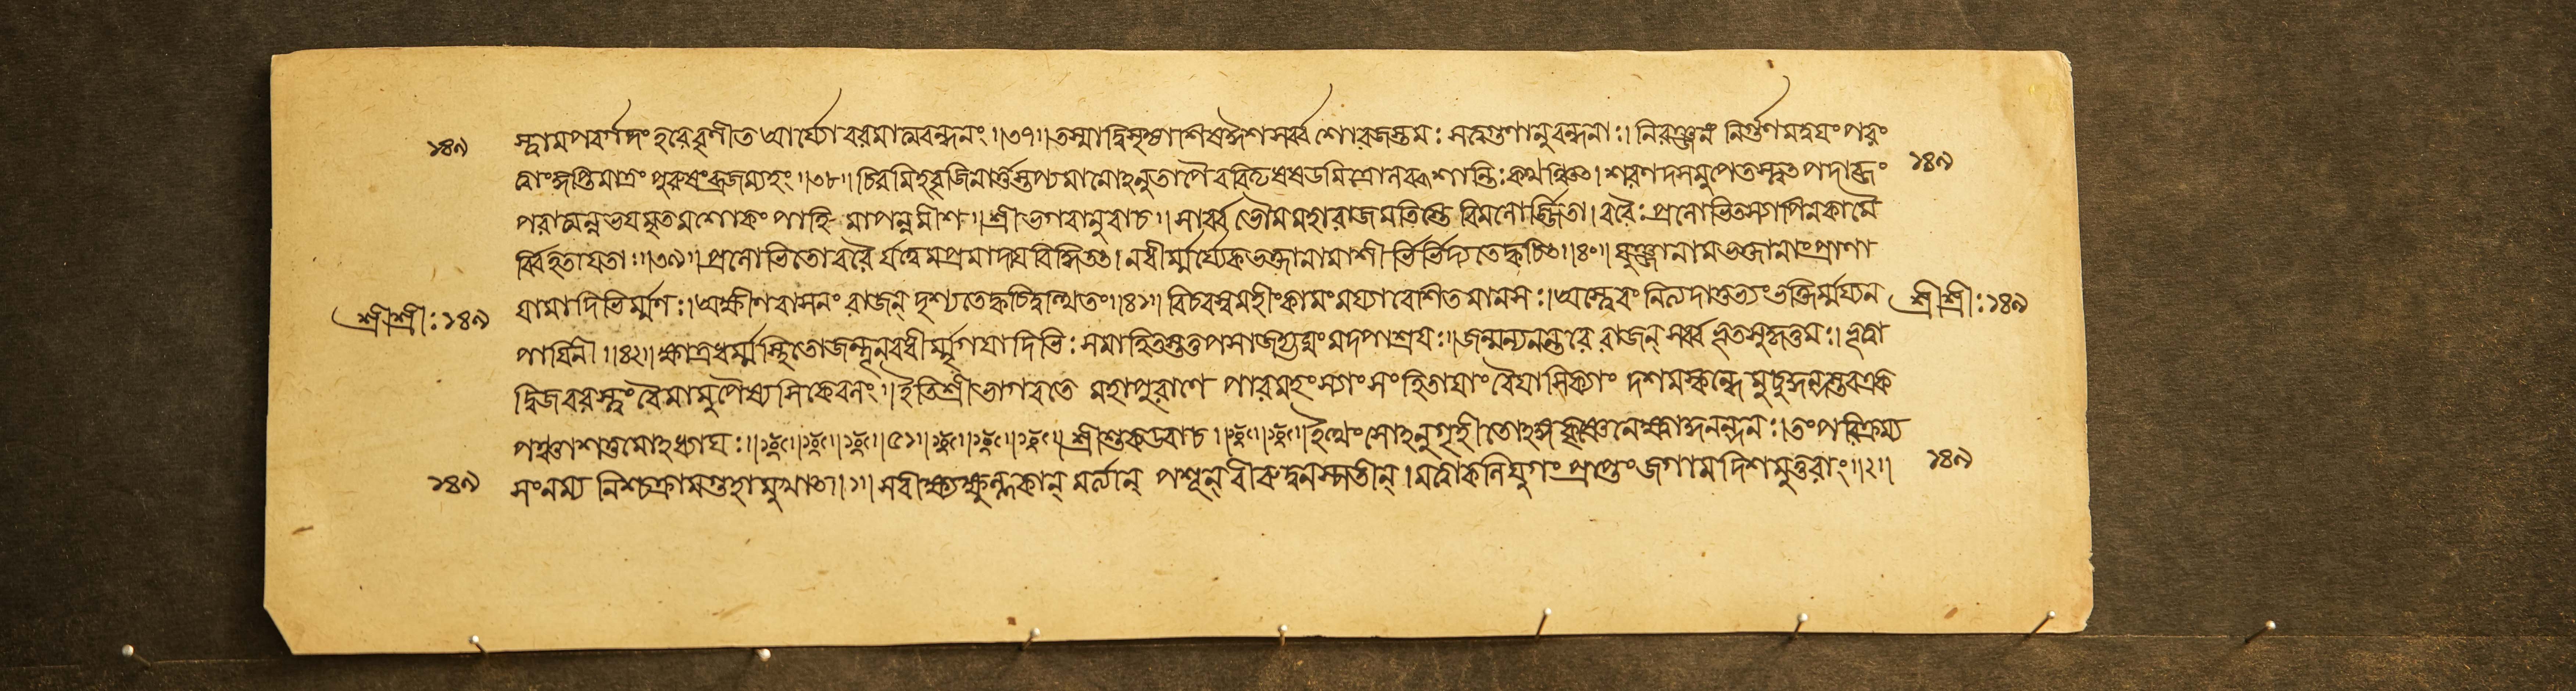 ১৪৯ স্ত্বামপবর্গদং হরে বৃণীত আর্য্যো বরমাত্মবন্ধনং ॥৩৭॥ তস্মাদ্বিসৃজ্যাশিষ ঈশ সর্ব্বশো রজস্তমঃ সত্ত্বগুণানুবন্ধনাঃ। নিরঞ্জনং নির্গুণমদ্বয়ং পরং
ত্বাং জ্ঞপ্তিমাত্রং পুরুষং ব্রজাম্যহং ॥৩৮॥ চিরমিহ বৃজিনার্ত্তস্তপ্যমানোঽনুতাপৈরবিতৃষষডমিত্রোলব্ধশান্তিঃ কথঞ্চিৎ। শরণদ সমুপেতস্ত্বৎপদাব্জং ১৪৯
পরাত্মন্নভয়মৃতমশোকং পাহি মাপন্নমীশ ॥ শ্রীভগবানুবাচ ॥ সার্ব্বভৌম মহারাজ মতিস্তে বিমলোর্জ্জিতা। বরৈঃ প্রলোভিতস্যাপি ন কামৈ
র্ব্বিহতা যতঃ ॥৩৯॥ প্রলোভিতো বরৈ র্যত্ত্বমপ্রমাদায় বিদ্ধি তৎ। ন ধীর্ম্ময্যেকভক্তানামাশীর্ভির্ভিদ্যতে ক্বচিৎ ॥৪০॥ যুঞ্জানামভক্তানাং প্রাণা
শ্রীশ্রীঃ ১৪৯ যামাদিভির্ম্মণঃ। অক্ষীণবাসনং রাজন্ দৃশ্যতে ক্বচিদুত্থিতং ॥৪১॥ বিচরস্ব মহীং কামং ময্যাবেশিতমানসঃ। অস্ত্বেবং নিত্যদা তুভ্যং ভক্তির্ম্ময্যন শ্রীশ্রীঃ ১৪৯
পায়িনী ॥৪২॥ ক্ষাত্রধর্ম্মস্থিতো জন্তূন্ ন্যবধীর্ম্মৃগয়াদিভিঃ সমাহিতস্তত্তপসা জহ্যঘং মদপাশ্রয়ঃ॥ জন্মন্যনন্তরে রাজন্ সর্ব্বভূতসুহৃত্তমঃ। ভূত্বা
দ্বিজবরস্ত্বং বৈ মামুপৈষ্যসি কেবলং ॥ ইতি শ্রীভাগবতে মহাপুরাণে পারমহংস্যাং সংহিতায়াং বৈয়াসিক্যাং দশমস্কন্ধে মুচুকুন্দস্তব এক
পঞ্চাশত্তমোঽধ্যায়ঃ ॥ ॥৫১॥ শ্রীশুক উবাচ ॥ ইত্থং সোঽনুগৃহীতোঽঙ্গ কৃষ্ণেনেক্ষ্বাকুনন্দনঃ। তং পরিক্রম্য
১৪৯ সংনম্য নিশ্চক্রাম গুহামুখাৎ ॥১॥ স বীক্ষ্য ক্ষুল্লকান্ মর্ত্যান্ পশূন্ বীরুদ্বনস্পতীন্। মত্বা কলিযুগং প্রাপ্তং জগাম দিশমুত্তরাং ॥২॥ ১৪৯